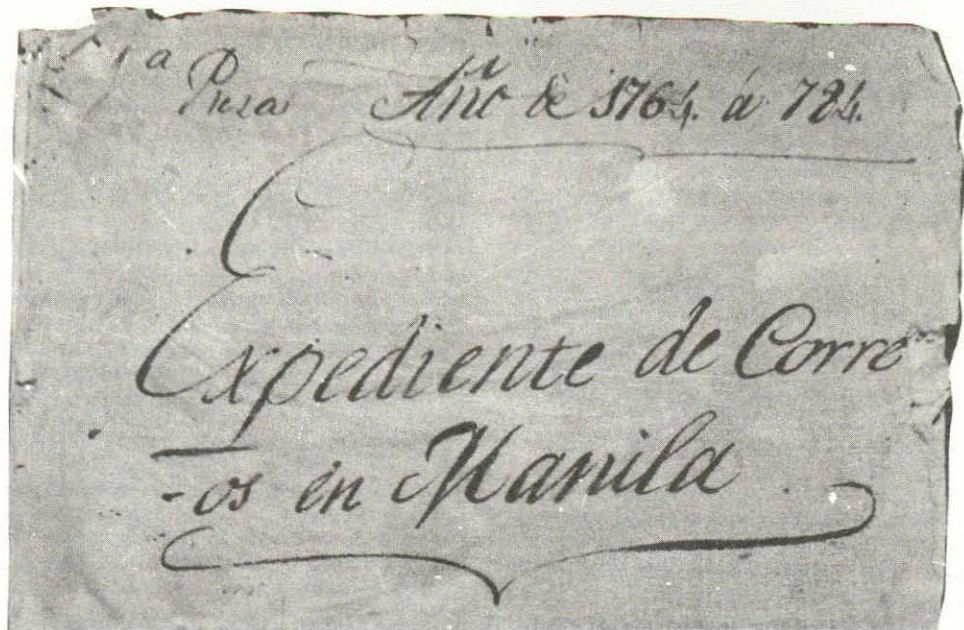 1ª Pieza Año de 1764. á 784.
Expediente de Corre
-os en Manila